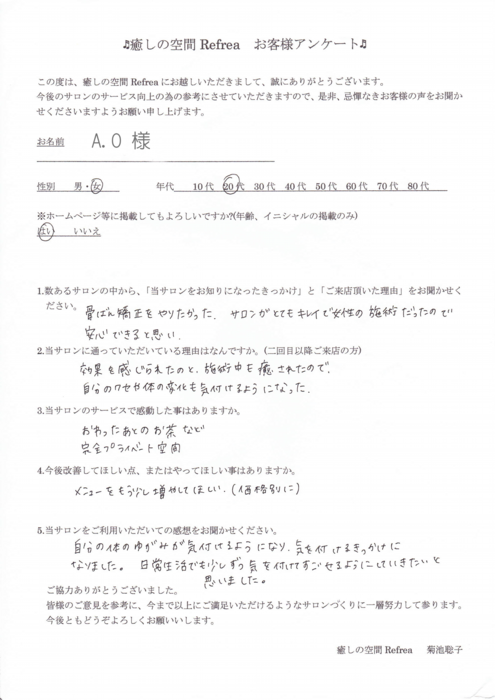 ♫癒しの空間 Refrea　お客様アンケート♫
この度は、癒しの空間 Refrea にお越しいただきまして、誠にありがとうございます。
今後のサロンのサービス向上の為の参考にさせていただきますので、是非、忌憚なきお客様の声をお聞かせくださいますようお願い申し上げます。
お名前　A.O 様
性別　男・女　年代　10代　20代　30代　40代　50代　60代　70代　80代
※ホームページ等に掲載してもよろしいですか?(年齢、イニシャルの掲載のみ)
はい　いいえ
1.数あるサロンの中から、「当サロンをお知りになったきっかけ」と「ご来店頂いた理由」をお聞かせください。
骨ばん矯正をやりたかった。サロンがとてもキレイで女性の施術だったので
安心できると思い.
2.当サロンに通っていただいている理由はなんですか。(二回目以降ご来店の方)
効果を感じられたのと、施術中も癒されたので.
自分のクセや体の変化も気付けるようになった.
3.当サロンのサービスで感動した事はありますか。
おわったあとのお茶など
完全プライベート空間
4.今後改善してほしい点、またはやってほしい事はありますか。
メニューをもう少し増やしてほしい.(価格別に)
5.当サロンをご利用いただいての感想をお聞かせください。
自分の体のゆがみが気付けるようになり、気を付けるきっかけに
なりました。日常生活でも少しずつ気を付けてすごせるようにしていきたいと
思いました。
ご協力ありがとうございました。
皆様のご意見を参考に、今まで以上にご満足いただけるようなサロンづくりに一層努力して参ります。
今後ともどうぞよろしくお願いいします。
癒しの空間 Refrea　菊池聡子